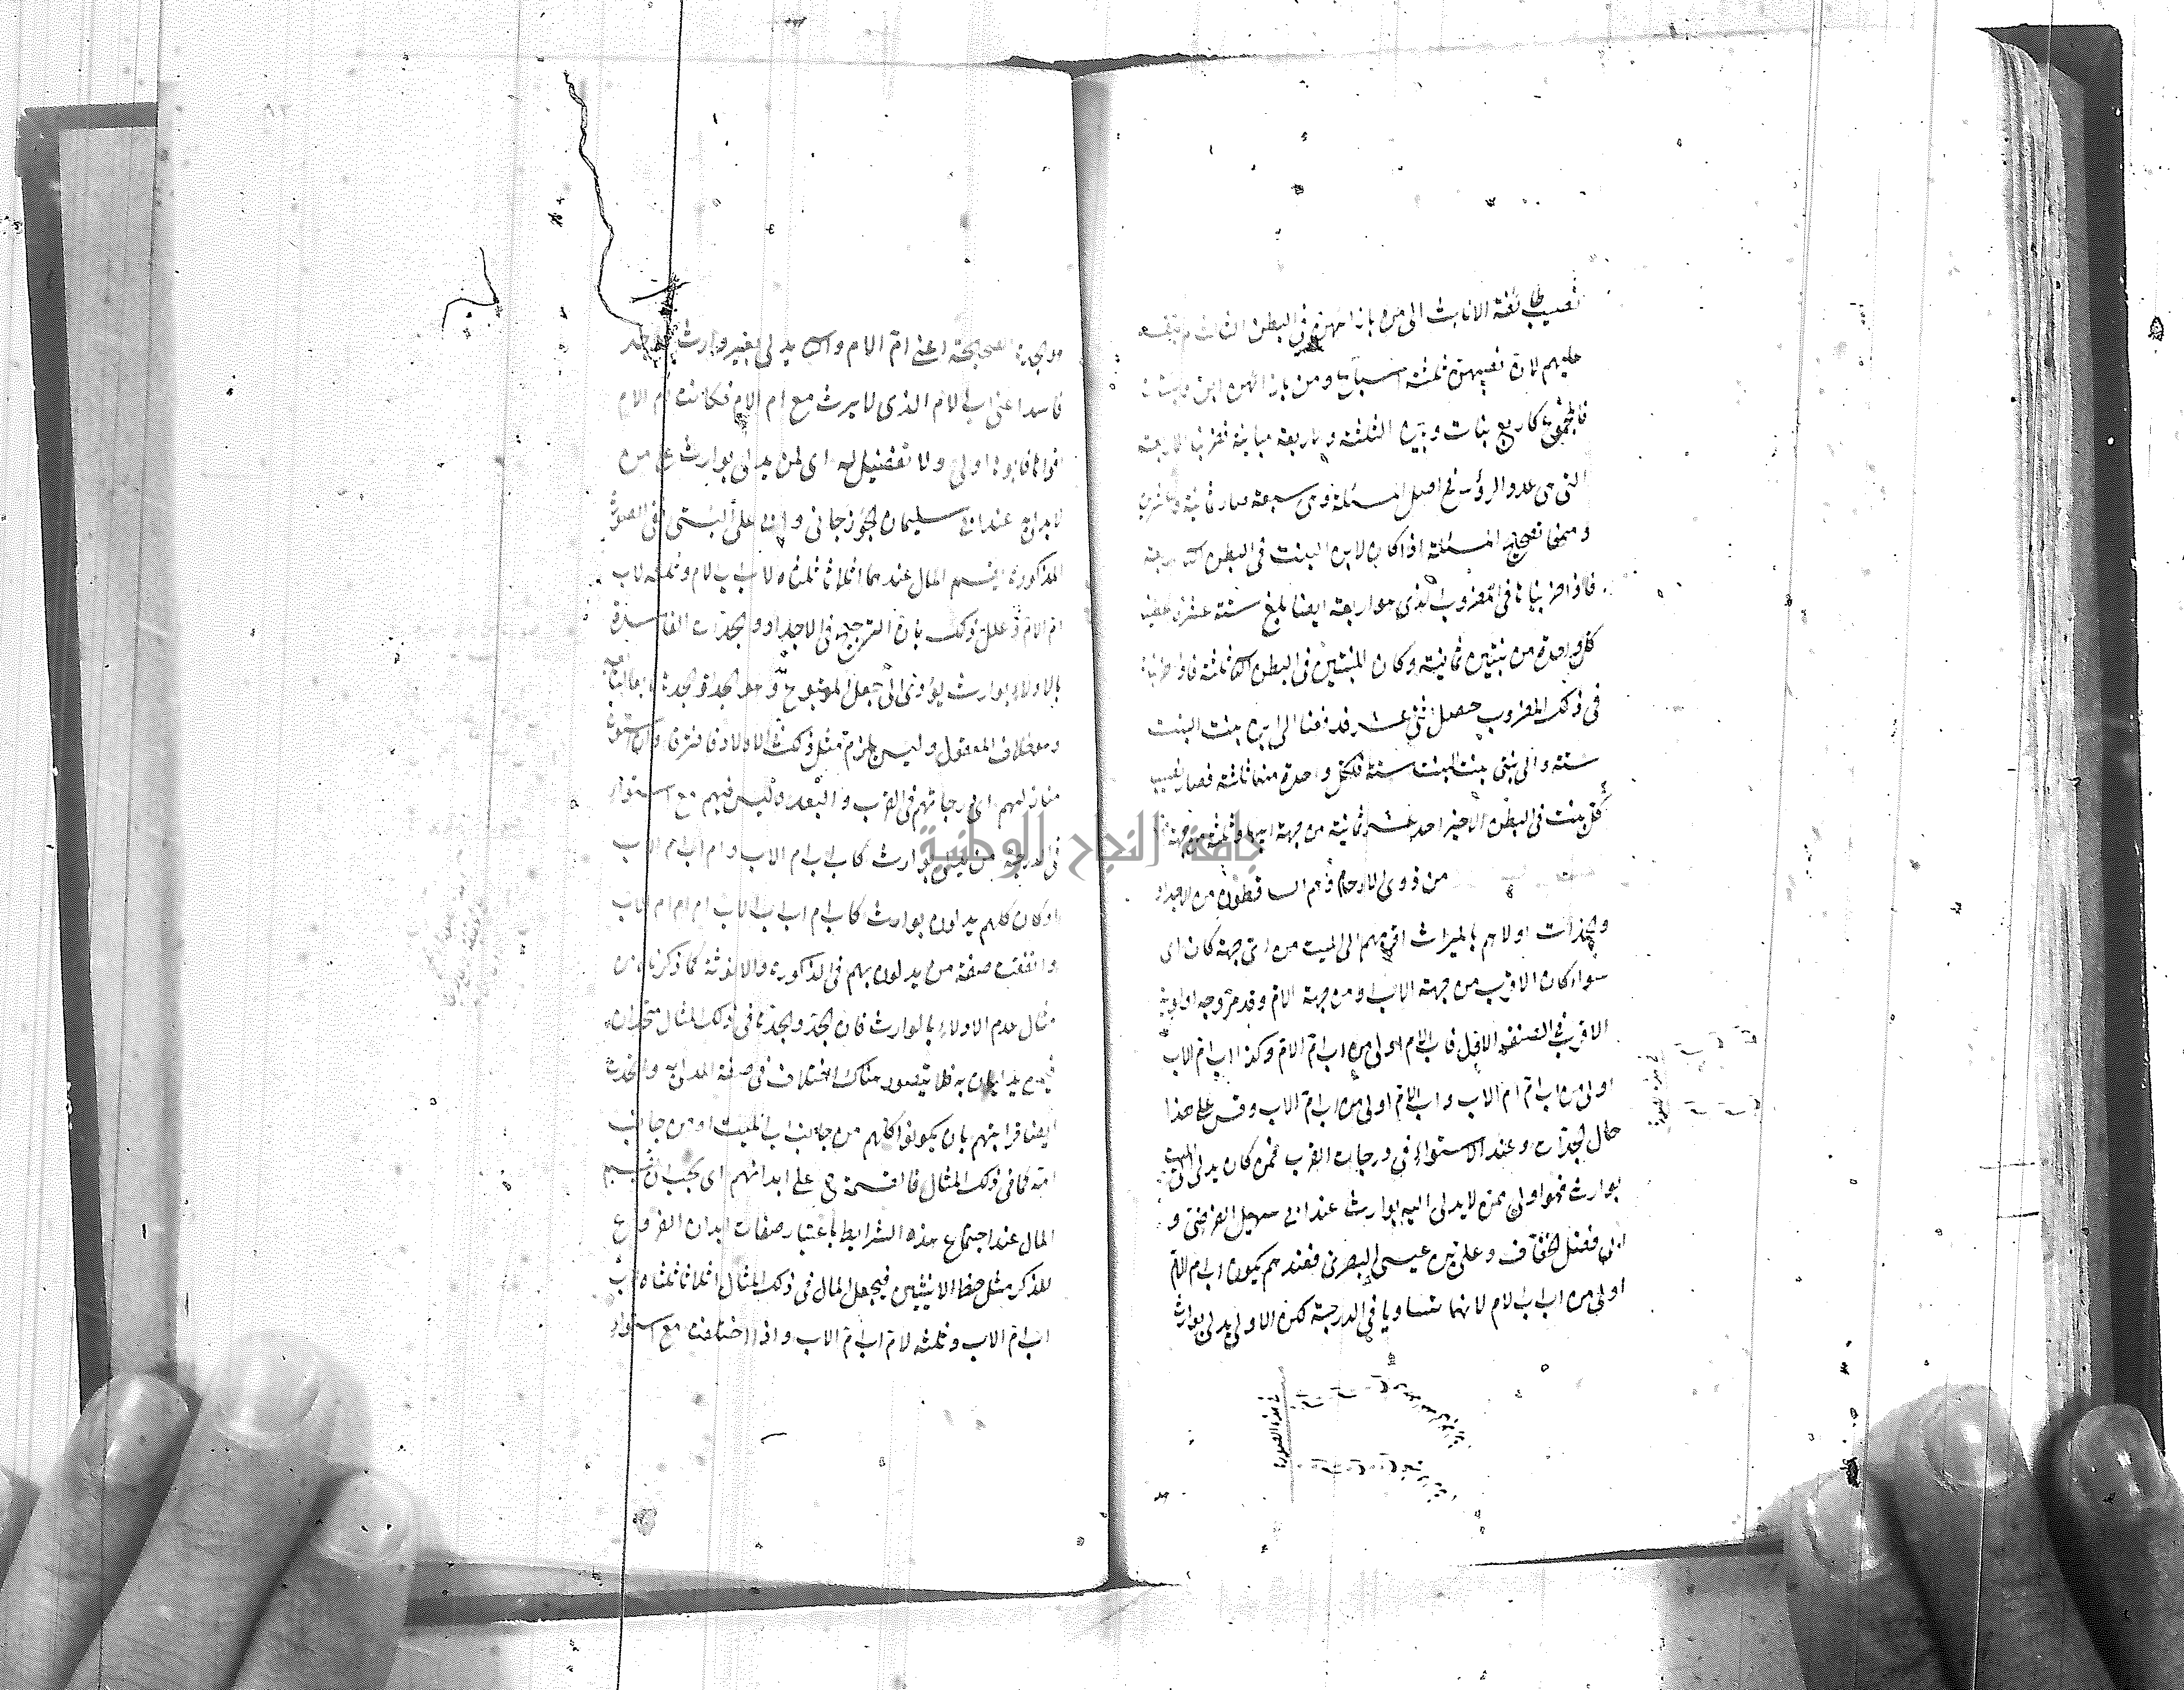 نصيب طائفة الاناث الى من بازائهن في البطن الثالث
عليهم لان نصيبهن ثلثة اسباع ومن بازائهن ابن
فالمجموع كاربع بنات وبين الثلثة والاربعة مباينة فضربنا الاربعة
التي هي عدد الرؤس في اصل المسئلة وهي سبعة صار ثمانية وعشرين
ومنها تصح المسئلة اذا كان لابن البنت في البطن الثاني اربعة
فاذا ضربناها في المضروب الذي هو اربعة ايضا بلغ ستة عشر
كل واحدة من بنتيه ثمانية وكان للبنتين في البطن الثاني ثلثة فاذا ضربناها
في ذلك المضروب حصل اثني عشر فدفعنا الى ابن بنت البنت
ستة والى بنتي بنت البنت ستة فلكل واحدة منهما ثلثة فصار نصيب
كل بنت في البطن الاخير احد عشر ثمانية من جهة ابيها وثلثة من جهة
من ذوي الارحام وهم الساقطون من الاجداد
والجدات اولاهم بالميراث اقربهم الى الميت من اي جهة كان اي
سواء كان الاقرب من جهة الاب او من جهة الام وقد مر وجه اولوية
الاقرب في الصنف الاول فاب الام اولى من اب ام الام وكذا اب ام الاب
اولى من اب ام ام الاب واب الام اولى من اب ام الاب وقس على هذا
حال الجدات وعند الاستواء في درجات القرب فمن كان يدلي الى الميت
بوارث فهو اولى ممن لا يدلي اليه بوارث عند ابي سهيل الفرضي و
ابي فضل الخفاف وعلي بن عيسى البصري فعندهم يكون اب ام الام
اولى من اب اب الام لانهما تساويا في الدرجة لكن الاول يدلي بوارث
هذه الصورة
الصحيحة اعني ام الام والثاني يدلي بغير وارث
فاسد اعني اب الام الذي لا يرث مع ام الام فكانت ام الام
اقوى فابوها اولى ولا تفضيل له اي لمن يدلي بوارث على من
لا يدلي عند ابي سليمان الجوزجاني وابي علي البستي ففي الصورة
المذكورة يقسم المال عندهما اثلاثا ثلثاه لاب اب الام وثلثه لاب
ام الام وعلل ذلك بان الترجيح في الاجداد والجدات الفاسدة
بالادلاء بوارث يؤدي الى جعل المتبوع وهو الجد او الجدة تابعا لتابعه
وهو خلاف المعقول وليس يلزم مثل ذلك في الاولاد فافترقا وان استوت
منازلهم اي درجاتهم في القرب والبعد وليس فيهم مع استواء
في الدرجة من يدلي بوارث كاب اب ام الاب وام اب ام الاب
او كان كلهم يدلون بوارث كاب ام اب اب الاب ام ام ام الاب
واتفقت صفة من يدلون بهم في الذكورة والانوثة كما ذكرناه من
مثال عدم الادلاء بالوارث فان الجد والجدة في ذلك المثال متحدان
فيمن يدليان به فلا يتصور هناك اختلاف في صفة المدلى به واتحدت
ايضا قرابتهم بان يكونوا كلهم من جانب اب الميت او من جانب
امه كما في ذلك المثال فالقسمة ح على ابدانهم اي يجب ان يقسم
المال عند اجتماع هذه الشرايط باعتبار صفات ابدان الفروع
للذكر مثل حظ الانثيين فيجعل المال في ذلك المثال اثلاثا ثلثاه لاب
اب ام الاب وثلثه لام اب ام الاب واذا اختلفت مع استواء
جامعة النجاح الوطنية